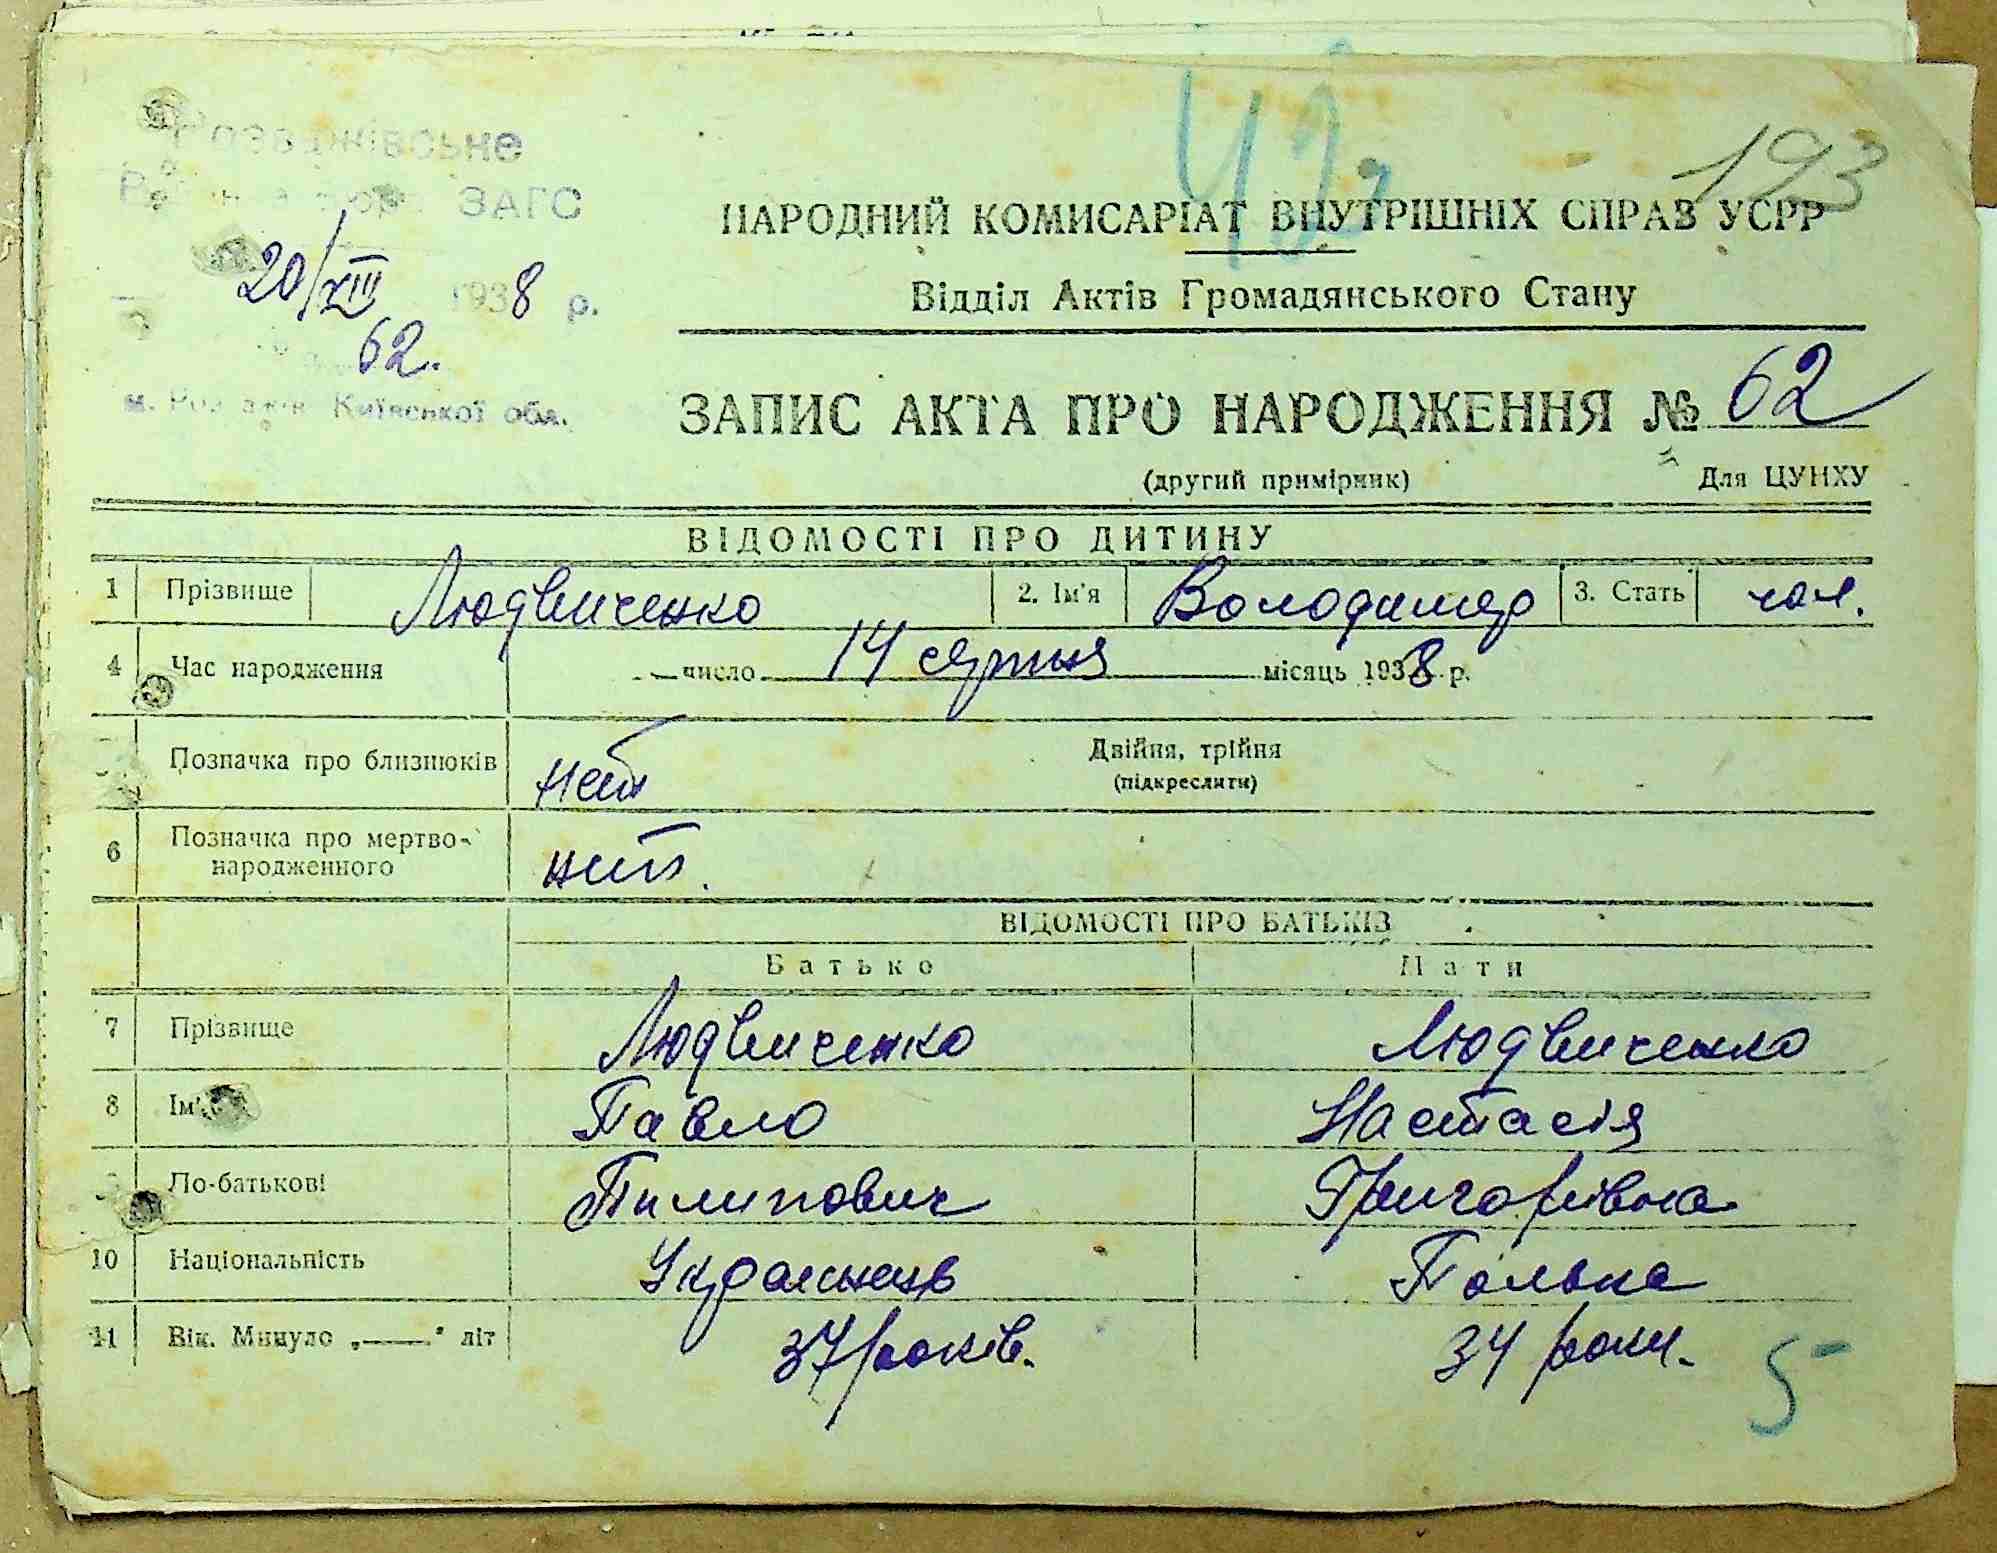 42
193
Розважівське
Районне бюро ЗАГС
20/VIII 1938 р.
62.
м. Розважів Київської обл.
НАРОДНИЙ КОМИСАРІАТ ВНУТРІШНІХ СПРАВ УСРР
Відділ Актів Громадянського Стану
ЗАПИС АКТА ПРО НАРОДЖЕННЯ № 62
(другий примірник) Для ЦУНХУ
ВІДОМОСТІ ПРО ДИТИНУ
1 Прізвище Людвиченко 2. Ім'я Володимер 3. Стать чол.
4 Час народження число 14 серпня місяць 1938 р.
Позначка про близнюків нет Двійня, трійня
(підкреслити)
6 Позначка про мертво-
народженного нет.
ВІДОМОСТІ ПРО БАТЬКІВ
Батько Мати
7 Прізвище Людвиченко Людвиченко
8 Ім'я Павло Настасія
По-батькові Пилипович Григорівна
10 Національність Українець Полька
11 Вік. Минуло „——" літ 37 років. 34 роки.
5